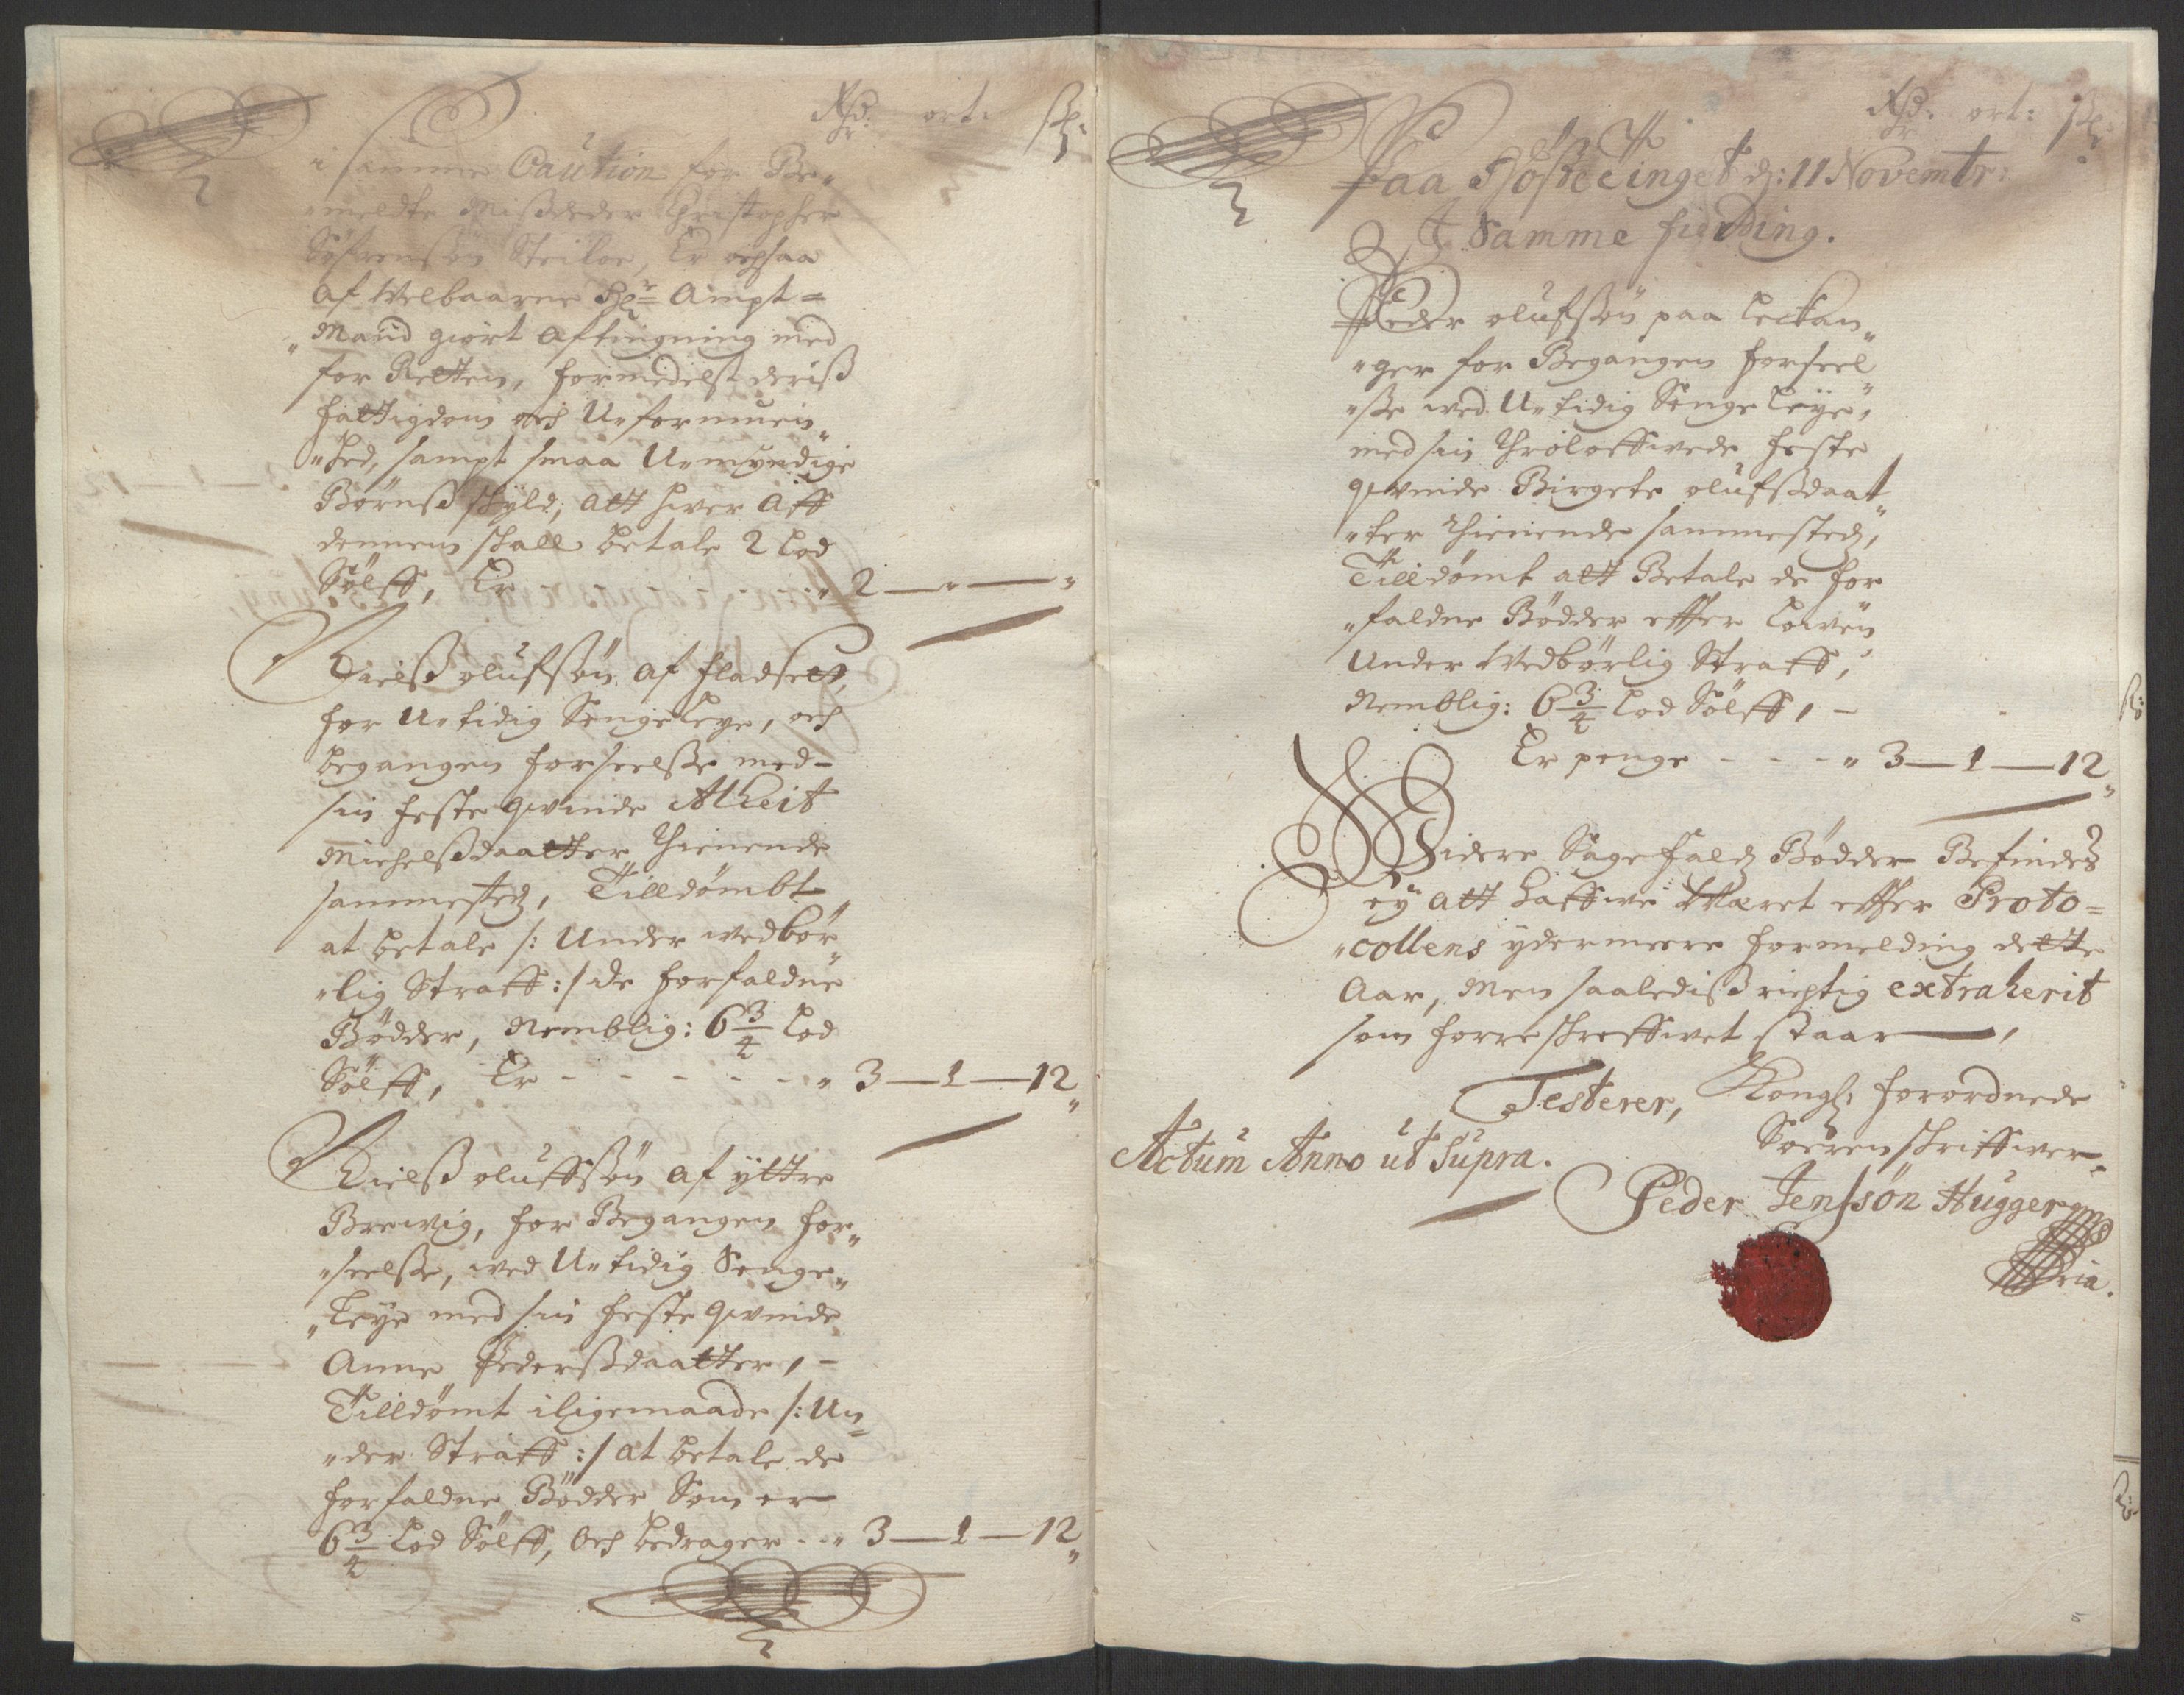 Rhd: ort: sk:
i samme Caution for Be„
„meldte Missdeder Christopher
Söfrensøn Steiloe, Er ochsaa
af Welbaarne Hr: Ampt=
„Mand giort aftingning med
for Retten, formedelst deriss
fattigdom och U„formuen„
„hed, sampt smaa U„myndige
Børnss skyld, att hver aff
dennem skall betale 2 Lod
Sölff, Er - - - „ 2 — „ — „
Nielss olufssøn af fladset,
for U„tidig Sengeleye, och
begangen forseelsse med
sin feste qwinde Alheit
Michelssdaatter thienende
sammesteds, Tilldømbt
at betale /: Under wedbør„
„lig Straff :/ de forfaldne
Bødder, Nemblig: 6 3/4 Lod
Sölff, Er - - - - - „ 3 — 1 — 12„
Nielss oluffssøn af yttre
Brewig, for Begangen for„
„seelsse, wed U„tidig Senge„
„Leye med sin feste qwinde
Anne Pederssdaatter, -
Tilldømt iligemaade /: Un„
„der Straff :/ at betale de
forfaldne Bødder Som er
6 3/4 Lod Sölff, och bedrager - - „ 3 — 1 — 12„
Rhd: ort: sk:
Paa Höstetinget d: 11 Novembr:
I Samme fierding.
Peder olufssøn paa Leckan„
„ger for Begangen forseel„
„sse wed U„tidig Senge Leye,
med sin throloffwede feste
qwinde Birgete olufssdaat„
„ter thienende sammesteds,
Tilldømt att Betale de for
„faldne Bødder effter Lowen
Under Wedbørlig Straff,
Nemblig: 6 3/4 Lod Sölff, -
Er penge - - - „ 3 — 1 — 12„
Widere Sagefalds Bødder Befindes
ey att haffwe Wæret effter Proto=
„collens ydermeere formelding dette
Aar, Men saalediss richtig extraherit
som forreskreffwet staar —,
Testerer, Kongl: forordnede
Sorenskriffwer
Actum Anno ut Supra.
Peder Jenssön Hugger
mpria.